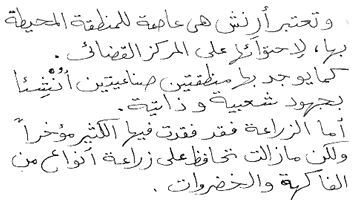 وتعتبر أرنش هى عاصمة للمنطقة المحيطة
بها، لاحتوائها على المركز القضائى.
كما يوجد بها منطقتين صناعيتين أُنْشِئا
بجهود شعبية وذاتية.
أما الزراعة فقد فقدت فيها الكثير مؤخراً
ولكن مازالت تحافظ على زراعة أنواع من
الفاكهة والخضروات.